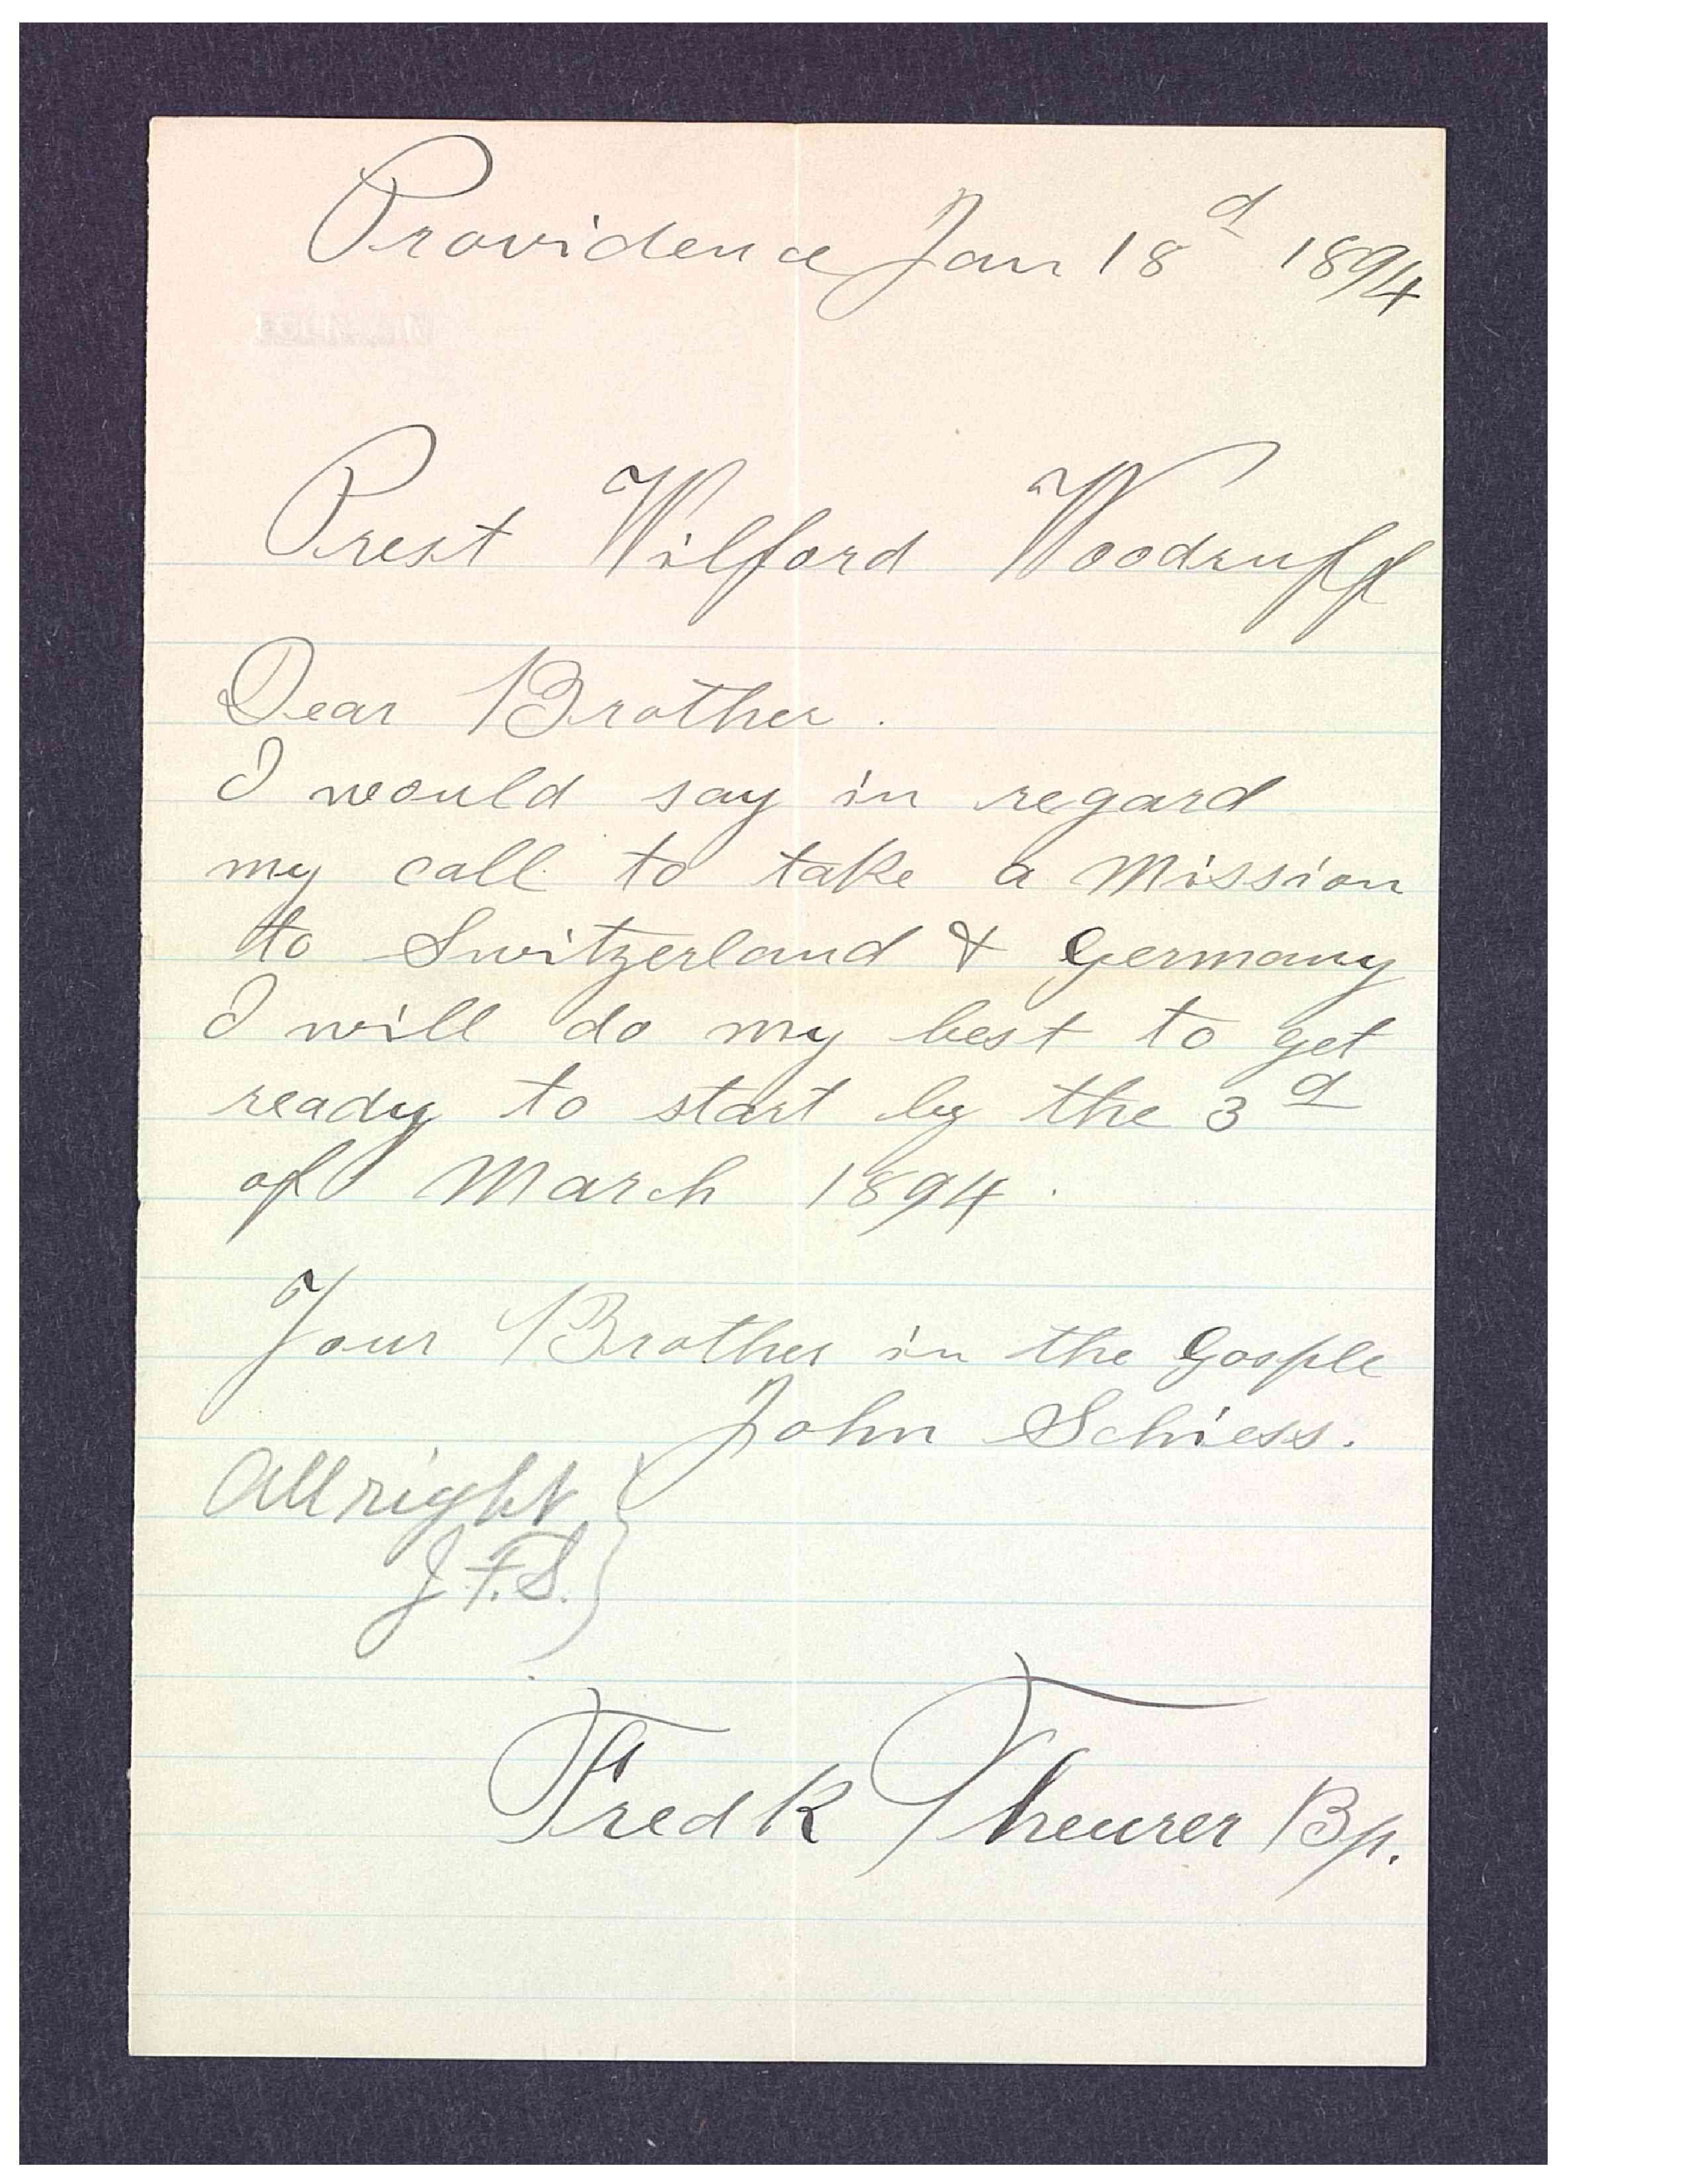 Providence Jan 18d 1894
Prest Wilford Woodruff
Dear Brother.
I would say in regard
my call to take a Mission
to Switzerland & Germany
I will do my best to get
ready to start by the 3d
of March 1894.
Your Brother in the Gosple
John Schiess.
All right
J.F.S.
Fredk Theurer Bp.